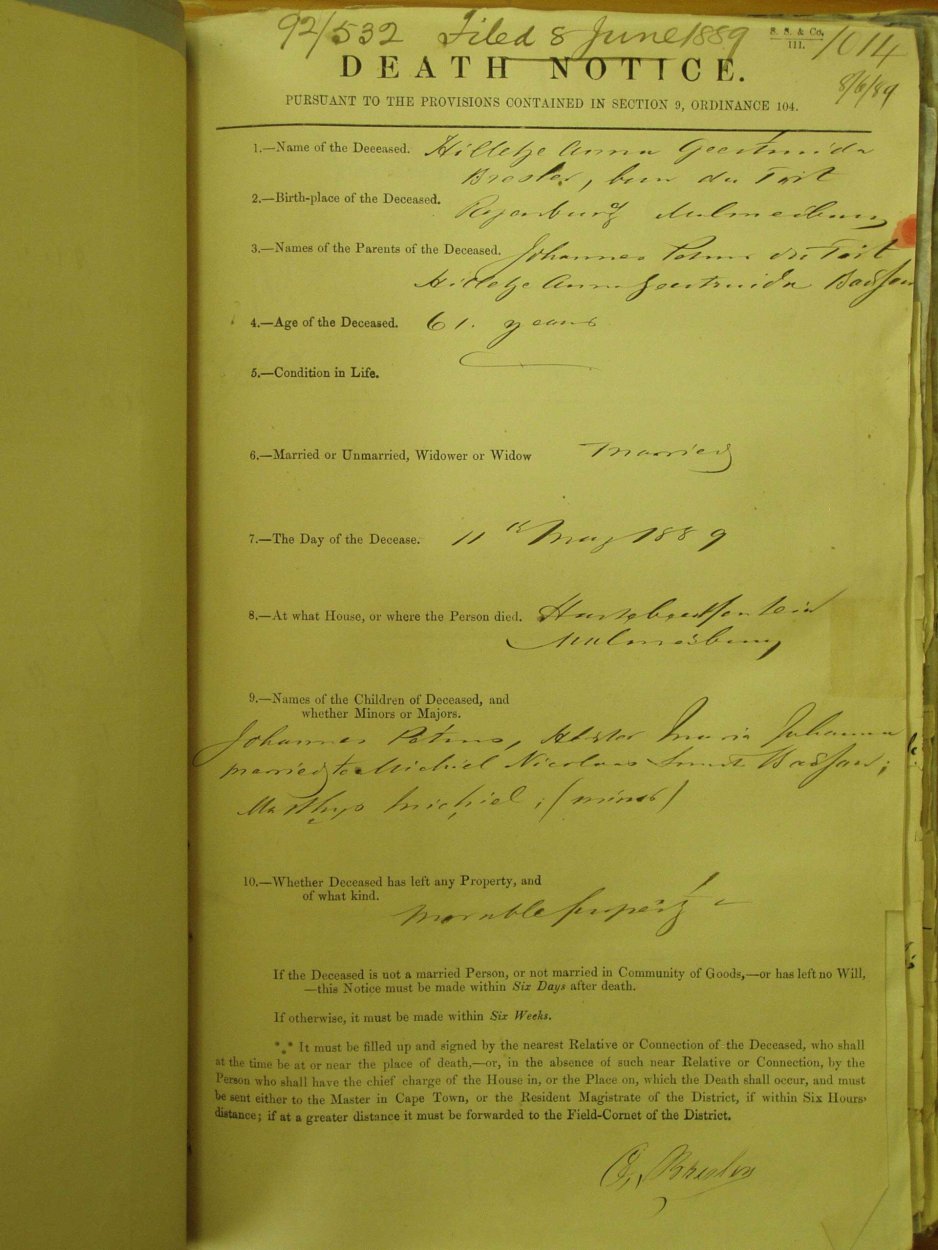 92/532 Filed 8 June 1889
S. S. & Co.
111.
1014
8/6/89
DEATH NOTICE.
PURSUANT TO THE PROVISIONS CONTAINED IN SECTION 9, ORDINANCE 104.
1.—Name of the Deceased. Hilletje Anna Geertruida
Bresler, born du Toit
2.—Birth-place of the Deceased. Malmesbury
3.—Names of the Parents of the Deceased. Johannes Petrus du Toit
Hilletje Anna Geertruida Basson
4.—Age of the Deceased. 61. years
5.—Condition in Life.
6.—Married or Unmarried, Widower or Widow Married
7.—The Day of the Decease. 11th May 1889
8.—At what House, or where the Person died. Hartebeestfontein
Malmesbury
9.—Names of the Children of Deceased, and
whether Minors or Majors.
Johannes Petrus, Hester Maria Johanna
married to Michiel Nicolaas Smut Basson;
Matthys Michiel; (minor)
10.—Whether Deceased has left any Property, and
of what kind.
Movable property
If the Deceased is not a married Person, or not married in Community of Goods,—or has left no Will,
—this Notice must be made within Six Days after death.
If otherwise, it must be made within Six Weeks.
*⁎* It must be filled up and signed by the nearest Relative or Connection of the Deceased, who shall
at the time be at or near the place of death,—or, in the absence of such near Relative or Connection, by the
Person who shall have the chief charge of the House in, or the Place on, which the Death shall occur, and must
be sent either to the Master in Cape Town, or the Resident Magistrate of the District, if within Six Hours'
distance; if at a greater distance it must be forwarded to the Field-Cornet of the District.
Bresler